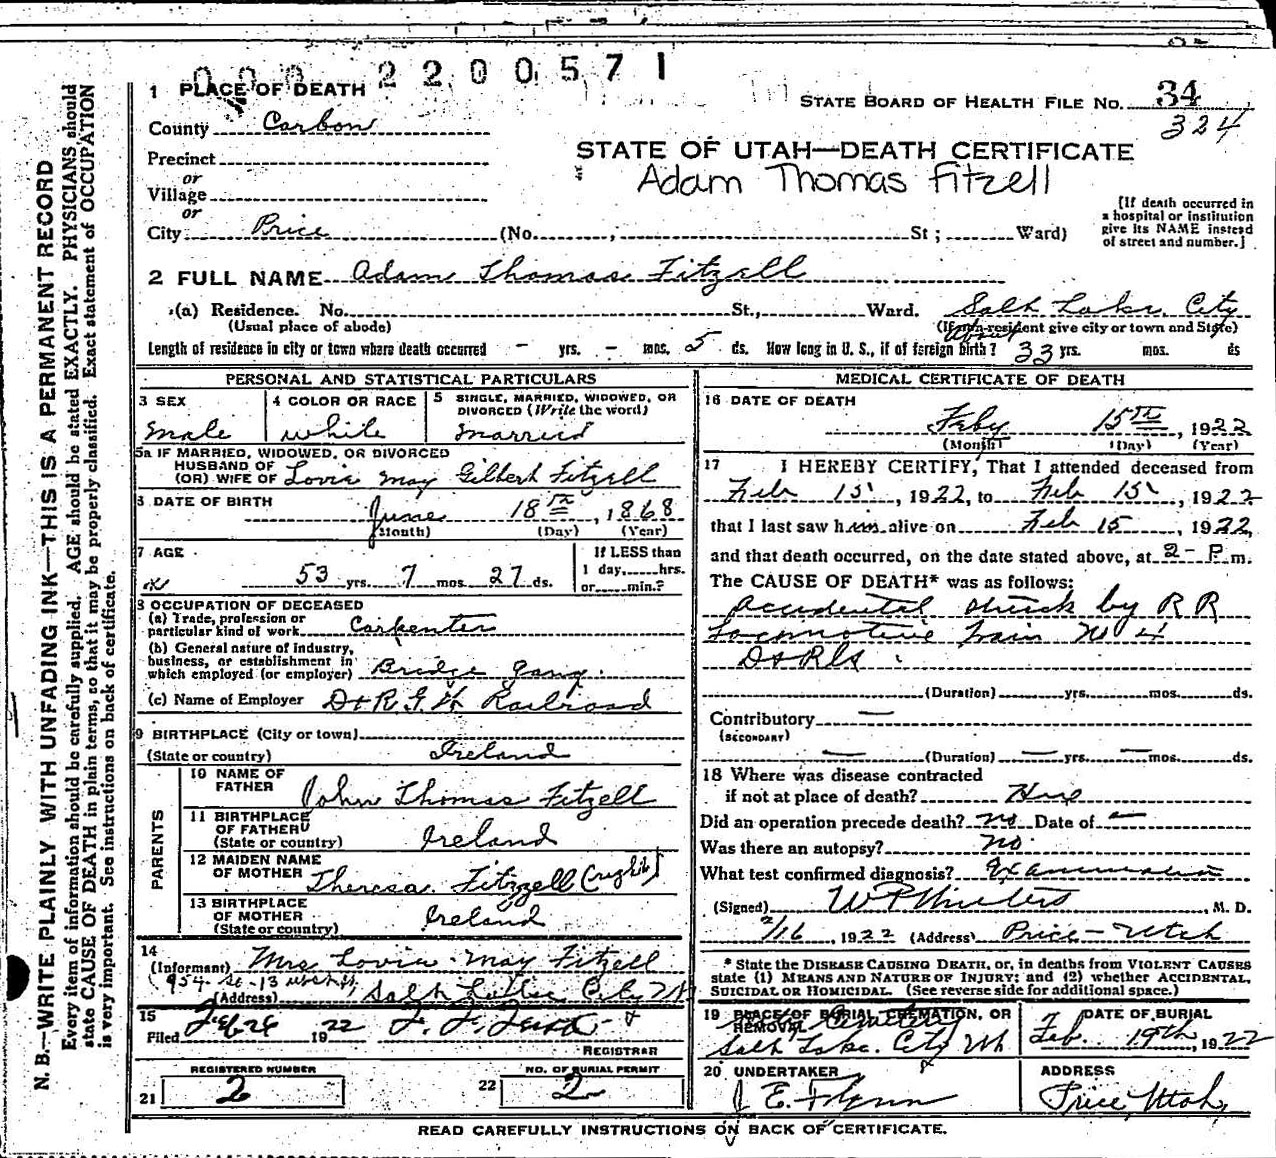 000 2200571
1 PLACE OF DEATH
STATE BOARD OF HEALTH FILE NO. 34
324
County Carbon
STATE OF UTAH—DEATH CERTIFICATE
Precinct
or
Adam Thomas Fitzell
Village
or
City Price (No. , St ; Ward)
[If death occurred in
a hospital or institution
give its NAME instead
of street and number.]
2 FULL NAME Adam Thomas Fitzell
(a) Residence. No. St., Ward. Salt Lake City
(Usual place of abode) (If non-resident give city or town and State)
Length of residence in city or town where death occurred - yrs. - mos. 5 ds. How long in U. S., if of foreign birth? About 33 yrs. mos. ds
PERSONAL AND STATISTICAL PARTICULARS
3 SEX
Male
4 COLOR OR RACE
White
5 SINGLE, MARRIED, WIDOWED, OR
DIVORCED (Write the word)
Married
5a IF MARRIED, WIDOWED, OR DIVORCED
HUSBAND OF
(OR) WIFE OF Lovia May Gilbert Fitzell
DATE OF BIRTH
June 18th, 1868
(Month) (Day) (Year)
7 AGE
53 yrs. 7 mos. 27 ds.
If LESS than
1 day, hrs.
or min.?
8 OCCUPATION OF DECEASED
(a) Trade, profession or
particular kind of work Carpenter
(b) General nature of industry,
business, or establishment in
which employed (or employer) Bridge gang.
(c) Name of Employer D & R. G. W Railroad
9 BIRTHPLACE (City or town)
(State or country) Ireland
PARENTS
10 NAME OF
FATHER John Thomas Fitzell
11 BIRTHPLACE
OF FATHER
(State or country) Ireland
12 MAIDEN NAME
OF MOTHER Theresa Fitzzell
13 BIRTHPLACE
OF MOTHER
(State or country) Ireland
14
(Informant) Mrs Lovia May Fitzell
954 So-13
(Address) Salt Lake City Ut
15
Filed Feb 26 1922
REGISTRAR
REGISTERED NUMBER
21 2
NO. OF BURIAL PERMIT
22 2
MEDICAL CERTIFICATE OF DEATH
16 DATE OF DEATH
Feby 15th, 1922
(Month) (Day) (Year)
17 I HEREBY CERTIFY, That I attended deceased from
Feb 15, 1922, to Feb 15, 1922
that I last saw him alive on Feb 15, 1922,
and that death occurred, on the date stated above, at 2- P. m.
The CAUSE OF DEATH* was as follows:
Accidental struck by R R
Locomotive Train No 4
D & R G
(Duration) yrs. mos. ds.
Contributory —
(SECONDARY)
— (Duration) — yrs. — mos. ds.
18 Where was disease contracted
if not at place of death?
Did an operation precede death? no Date of —
Was there an autopsy? No.
What test confirmed diagnosis? Examination
(Signed) , M. D.
2/16, 1922 (Address) Price - Utah
* State the DISEASE CAUSING DEATH, or, in deaths from VIOLENT CAUSES
state (1) MEANS AND NATURE OF INJURY; and (2) whether ACCIDENTAL,
SUICIDAL OR HOMICIDAL. (See reverse side for additional space.)
19 PLACE OF BURIAL, CREMATION, OR
REMOVAL Cemetery
Salt Lake City Ut
DATE OF BURIAL
Feb. 19th, 1922
20 UNDERTAKER
J E. Flynn
ADDRESS
Price, Utah,
READ CAREFULLY INSTRUCTIONS ON BACK OF CERTIFICATE.
N. B.—WRITE PLAINLY WITH UNFADING INK—THIS IS A PERMANENT RECORD
Every item of information should be carefully supplied. AGE should be stated EXACTLY. PHYSICIANS should
state CAUSE OF DEATH in plain terms, so that it may be properly classified. Exact statement of OCCUPATION
is very important. See instructions on back of certificate.